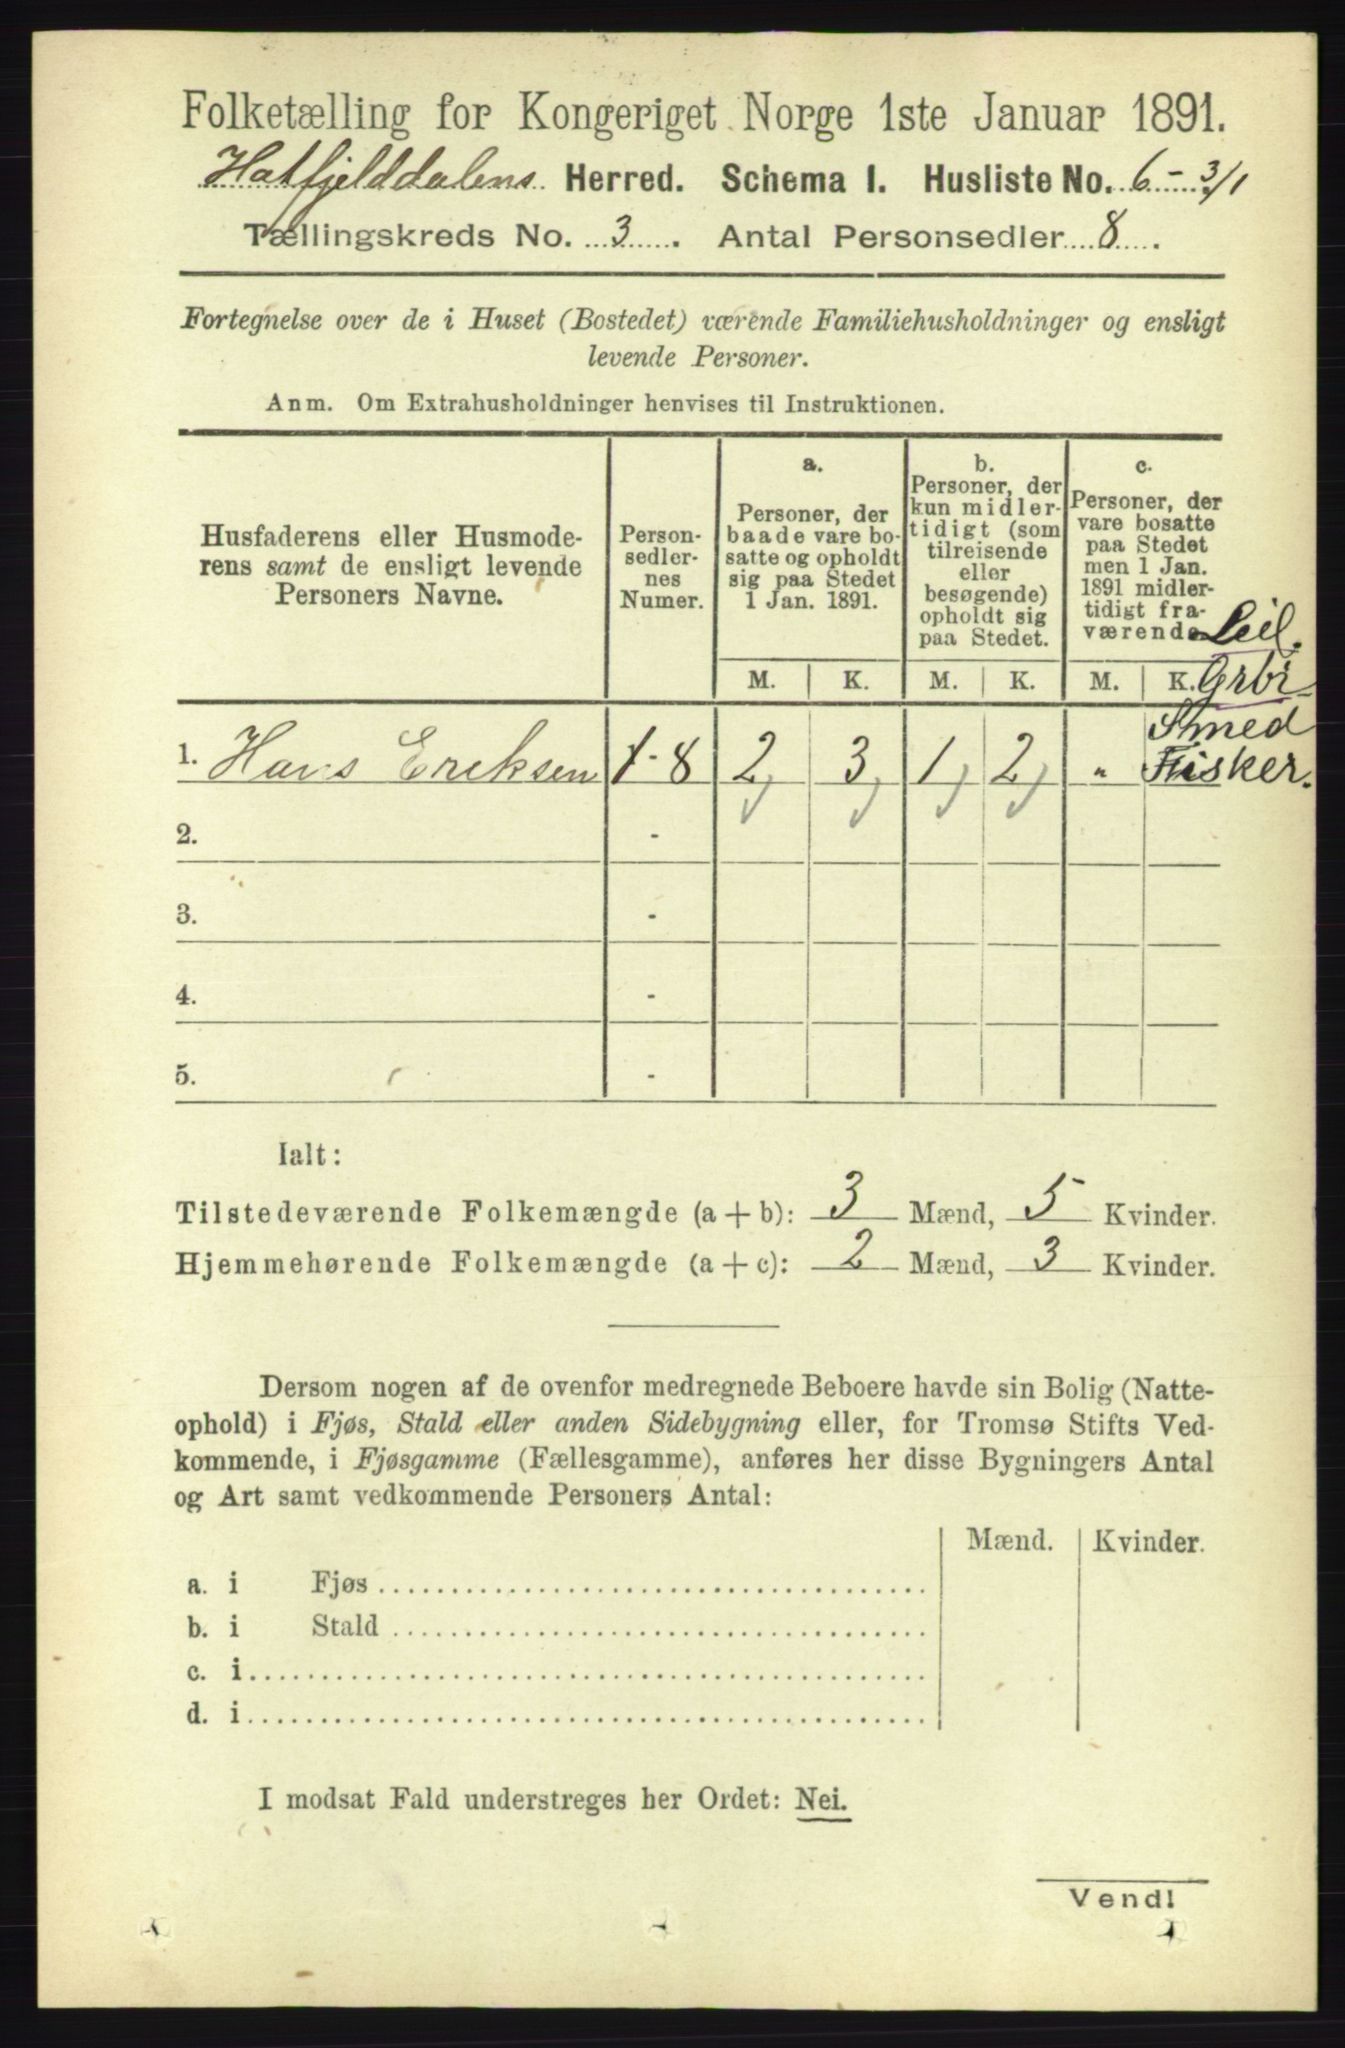 Folketælling for Kongeriget Norge 1ste Januar 1891.
Hatfjelddalens Herred. Schema I. Husliste No. 6 - 3/1
Tællingskreds No. 3. Antal Personsedler 8.
Fortegnelse over de i Huset (Bostedet) værende Familiehusholdninger og ensligt
levende Personer.
Anm. Om Extrahusholdninger henvises til Instruktionen.
Husfaderens eller Husmode-
rens samt de ensligt levende
Personers Navne.
Person-
sedler-
nes
Numer.
a.
Personer, der
baade vare bo-
satte og opholdt
sig paa Stedet
1 Jan. 1891.
b.
Personer, der
kun midler-
tidigt (som
tilreisende
eller
besøgende)
opholdt sig
paa Stedet.
c.
Personer, der
vare bosatte
paa Stedet
men 1 Jan.
1891 midler-
tidigt fra-
værende
M. K. M. K. M. K.
Leil.
Grbr
Smed
Fisker.
1. Hans Eriksen 1-8 2 3 1 2 "
2. -
3. -
4. -
5. -
Ialt:
Tilstedeværende Folkemængde (a + b): 3 Mænd, 5 Kvinder.
Hjemmehørende Folkemængde (a + c): 2 Mænd, 3 Kvinder.
Dersom nogen af de ovenfor medregnede Beboere havde sin Bolig (Natte-
ophold) i Fjøs, Stald eller anden Sidebygning eller, for Tromsø Stifts Ved-
kommende, i Fjøsgamme (Fællesgamme), anføres her disse Bygningers Antal
og Art samt vedkommende Personers Antal:
Mænd. Kvinder.
a. i Fjøs
b. i Stald
c. i
d. i
I modsat Fald understreges her Ordet: Nei.
Vend!